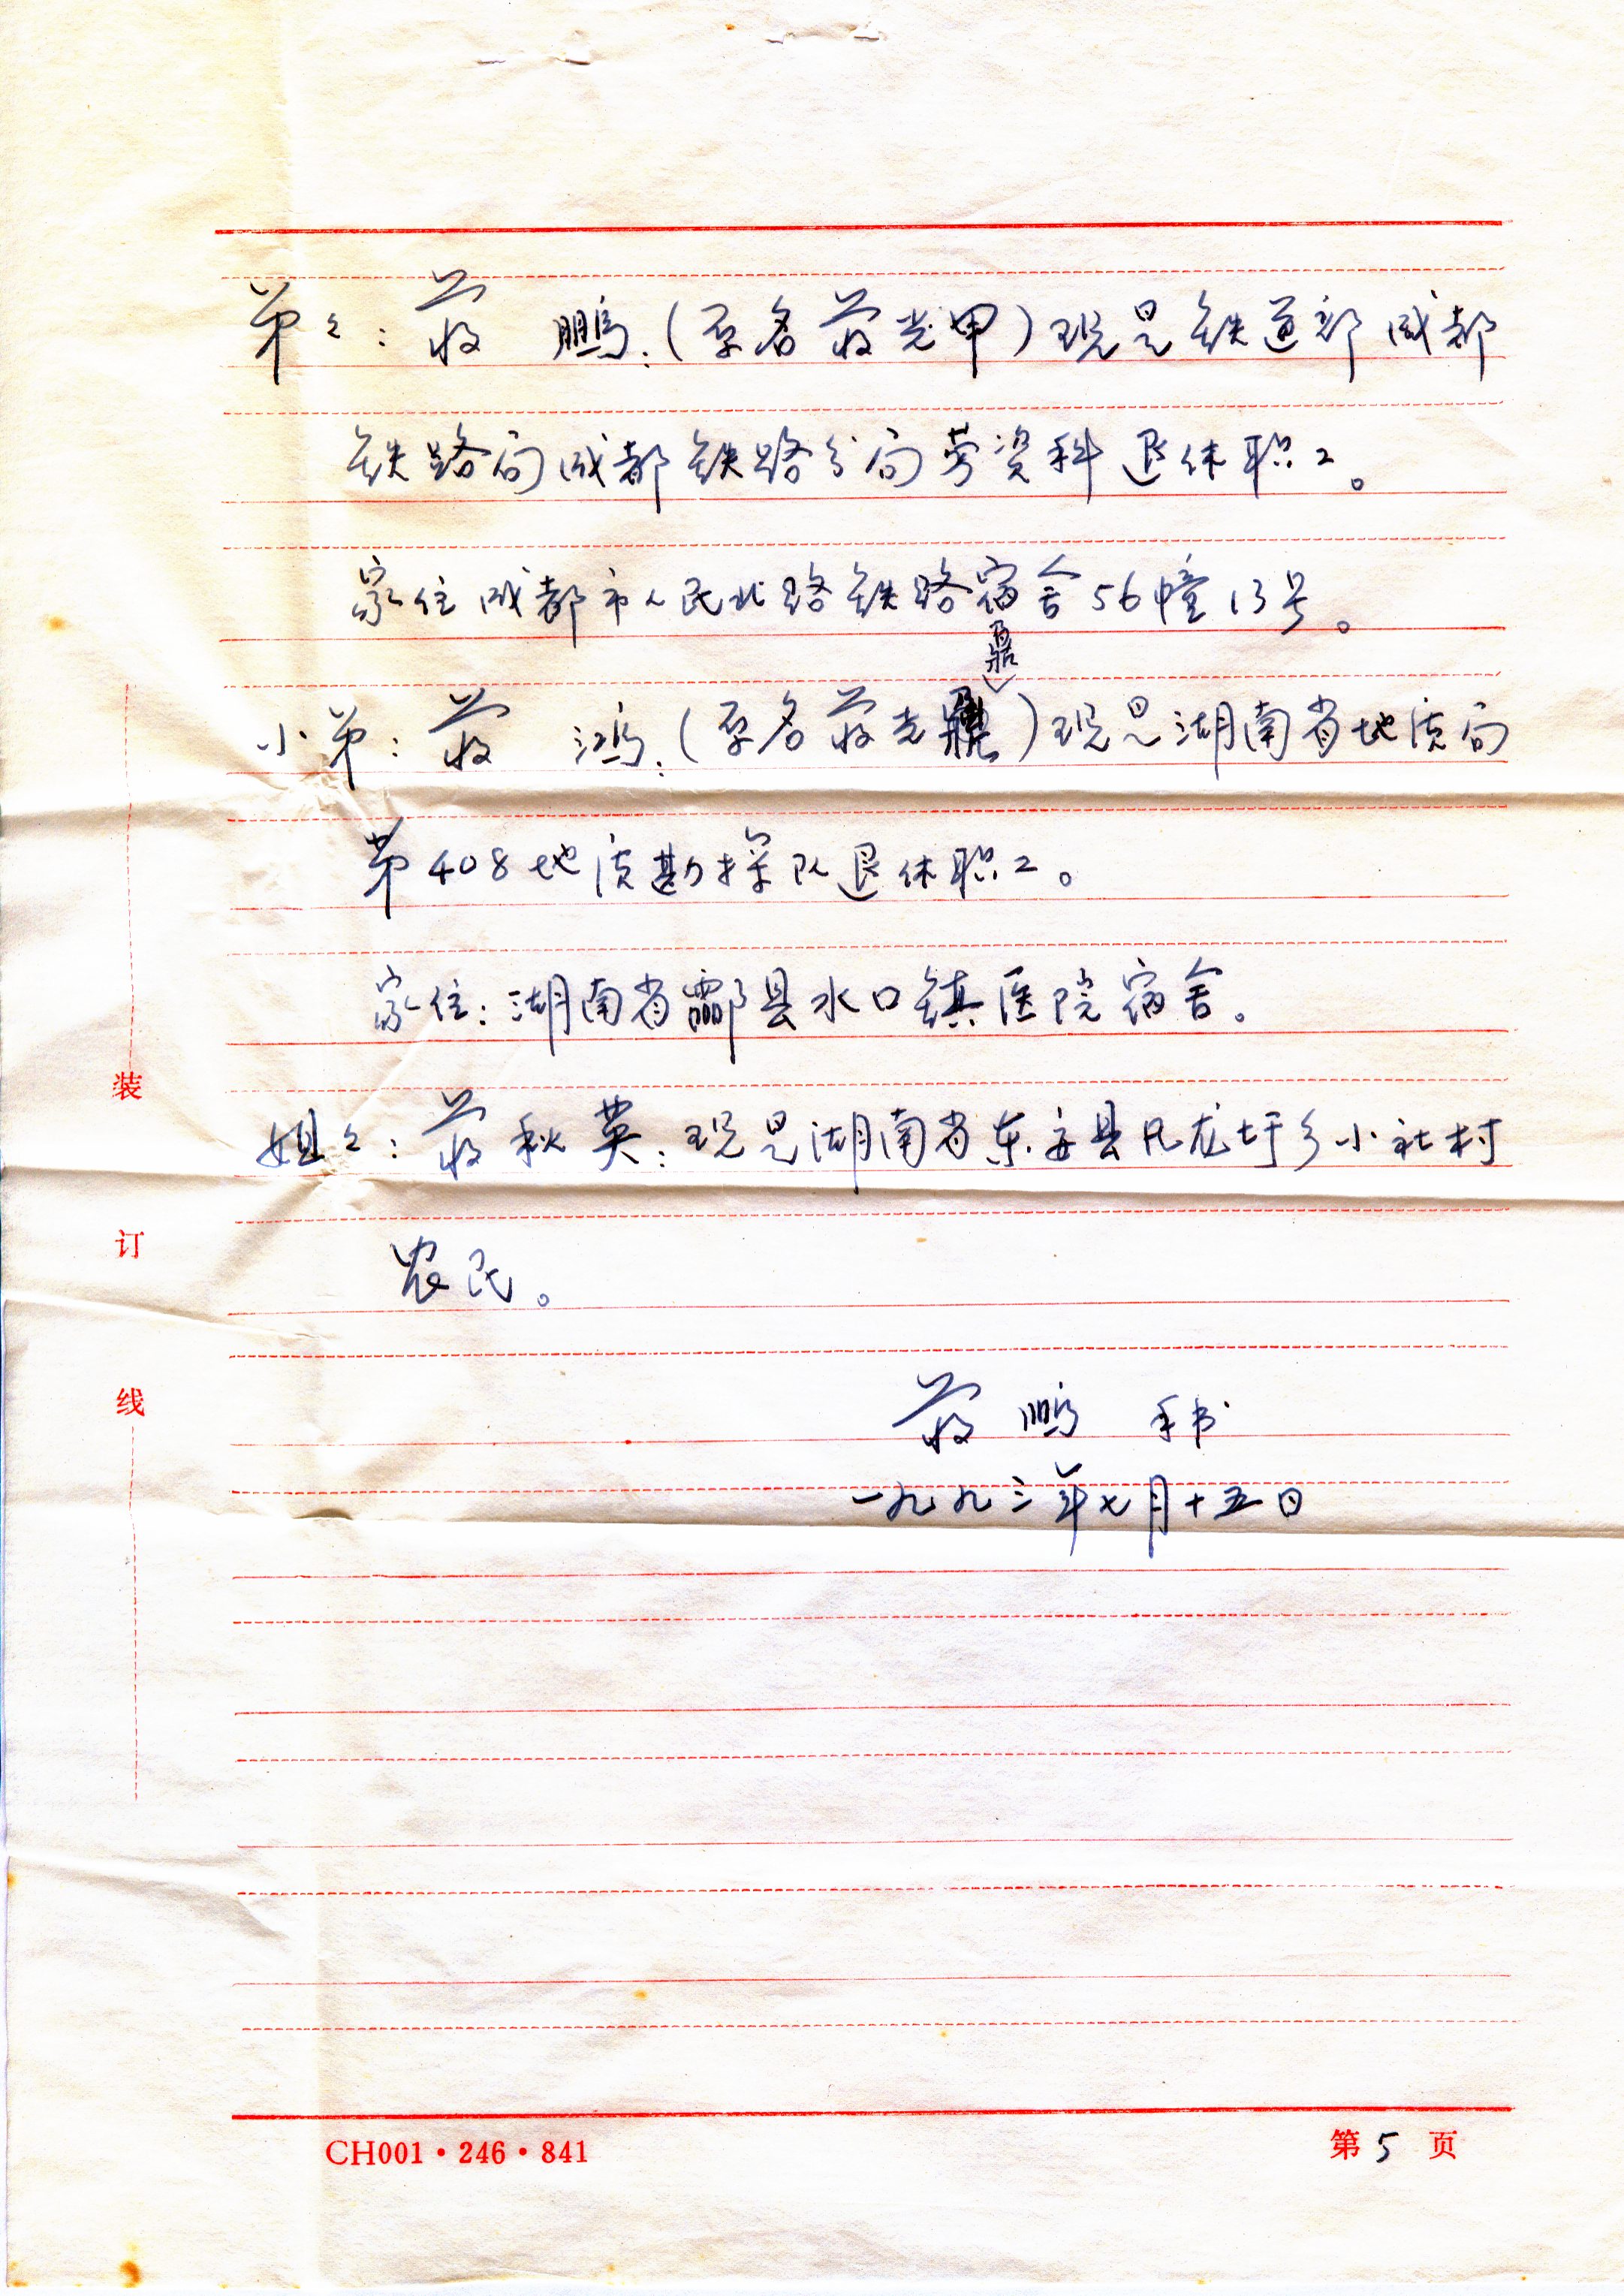 弟々：蒋 鹏．（原名蒋光甲）现是铁道部成都
铁路局成都铁路分局劳资科退休职工。
家住成都市人民北路铁路宿舍56幢13号。
鼐
小弟：蒋 鸿．（原名蒋光）现是湖南省地质局
第408地质勘探队退休职工。
家住：湖南省酃县水口镇医院宿舍。
姐々：蒋秋英：现是湖南省东安县凡龙圩乡小社村
农民。
蒋鹏 手书
一九九三年七月十五日
装
订
线
CH001·246·841
第5页